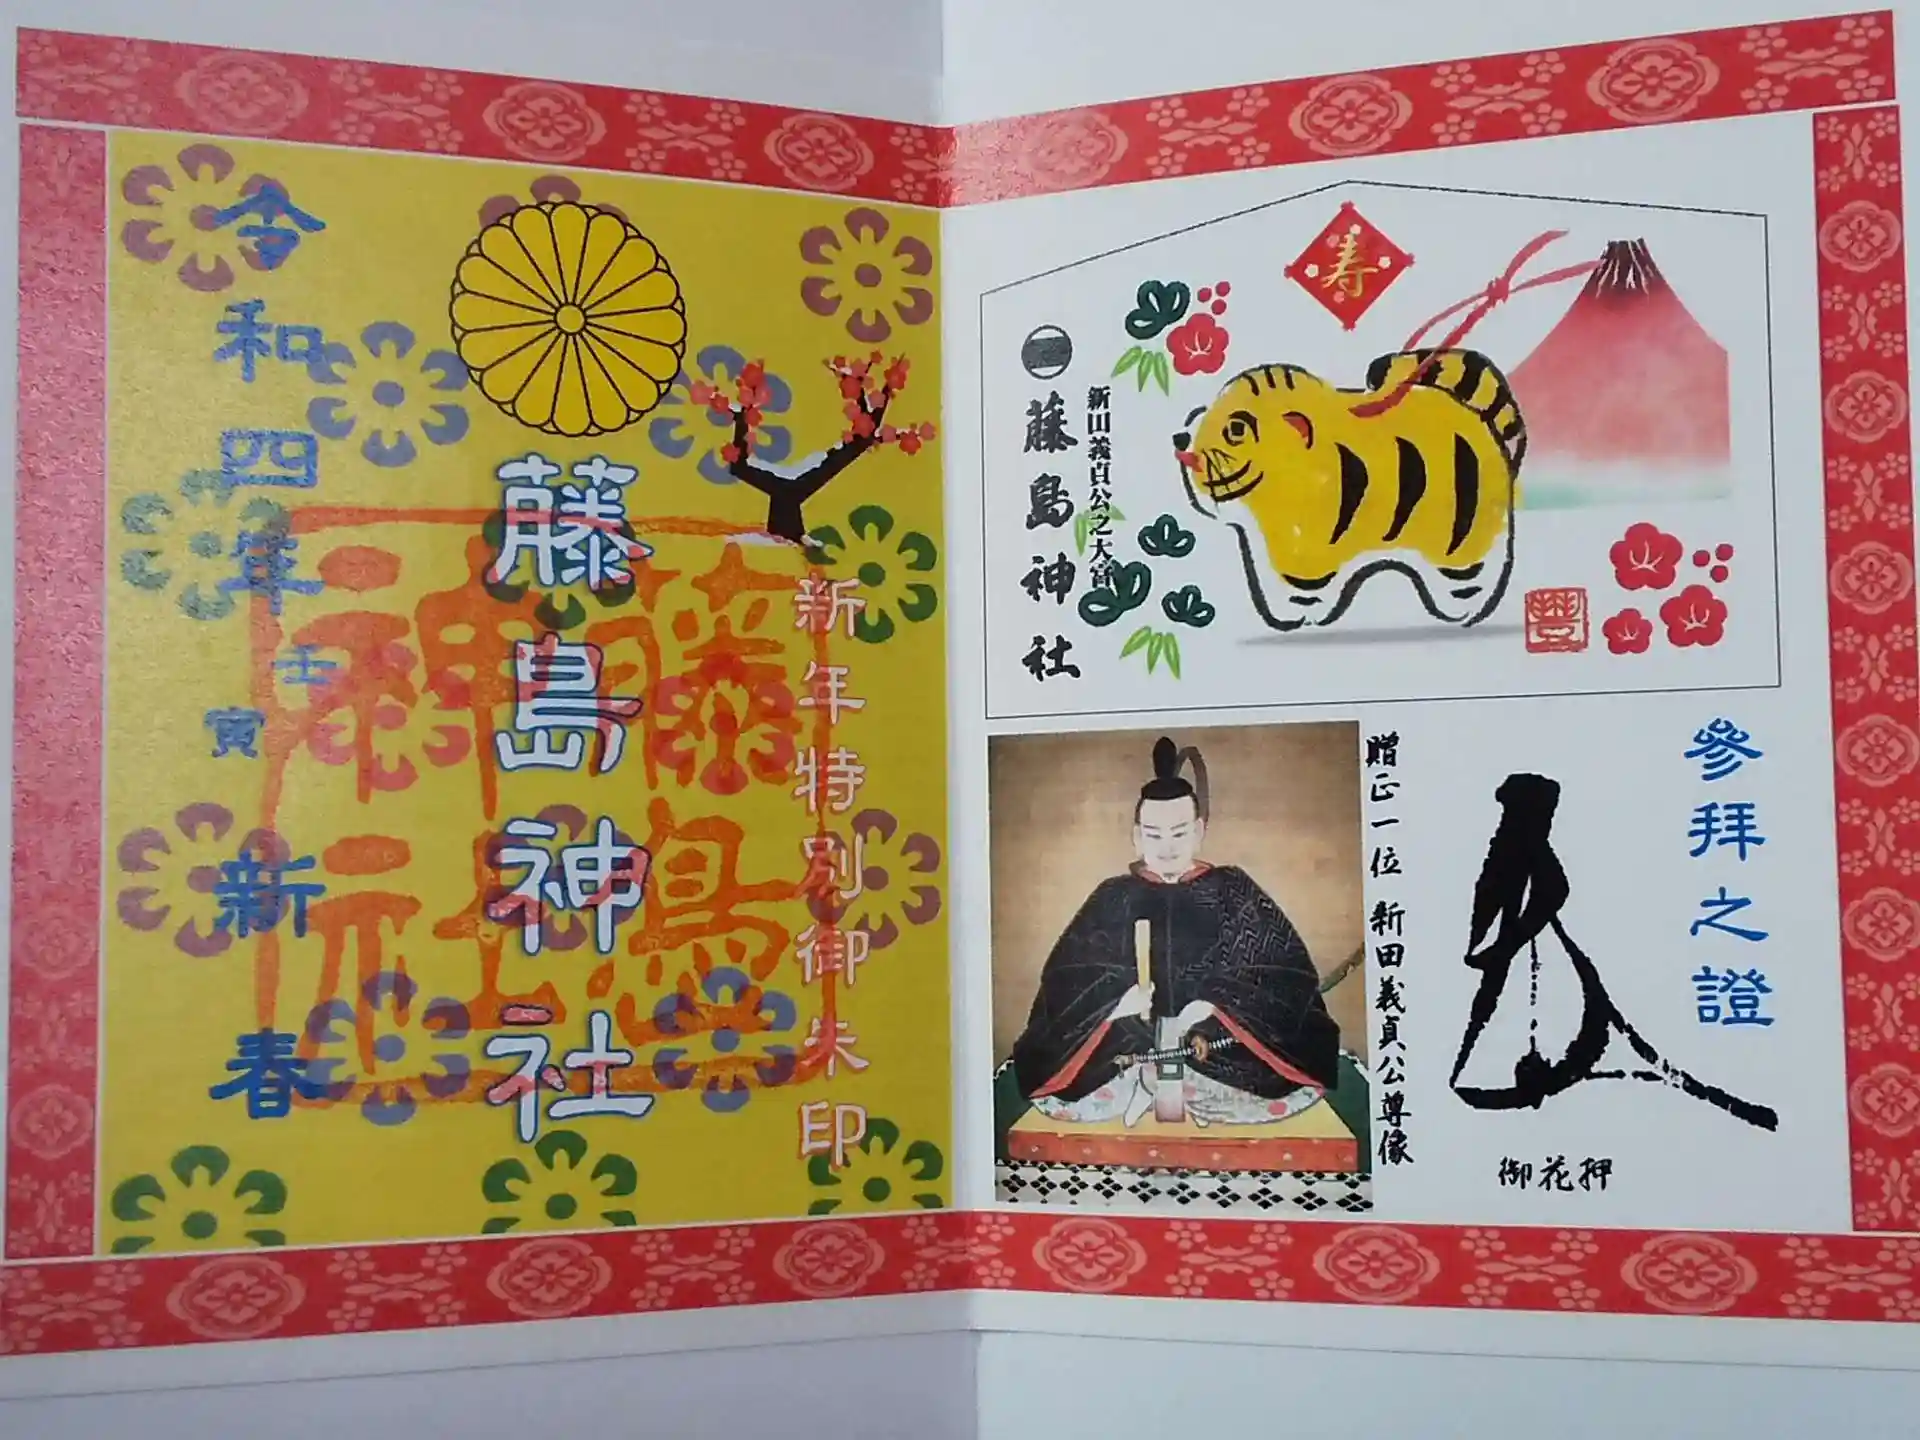 新年特別御朱印
藤島神社
令和四年
壬寅
新春
藤島神社
寿
新田義貞公之大宮
藤島神社
參拜之證
御花押
贈正一位 新田義貞公尊像